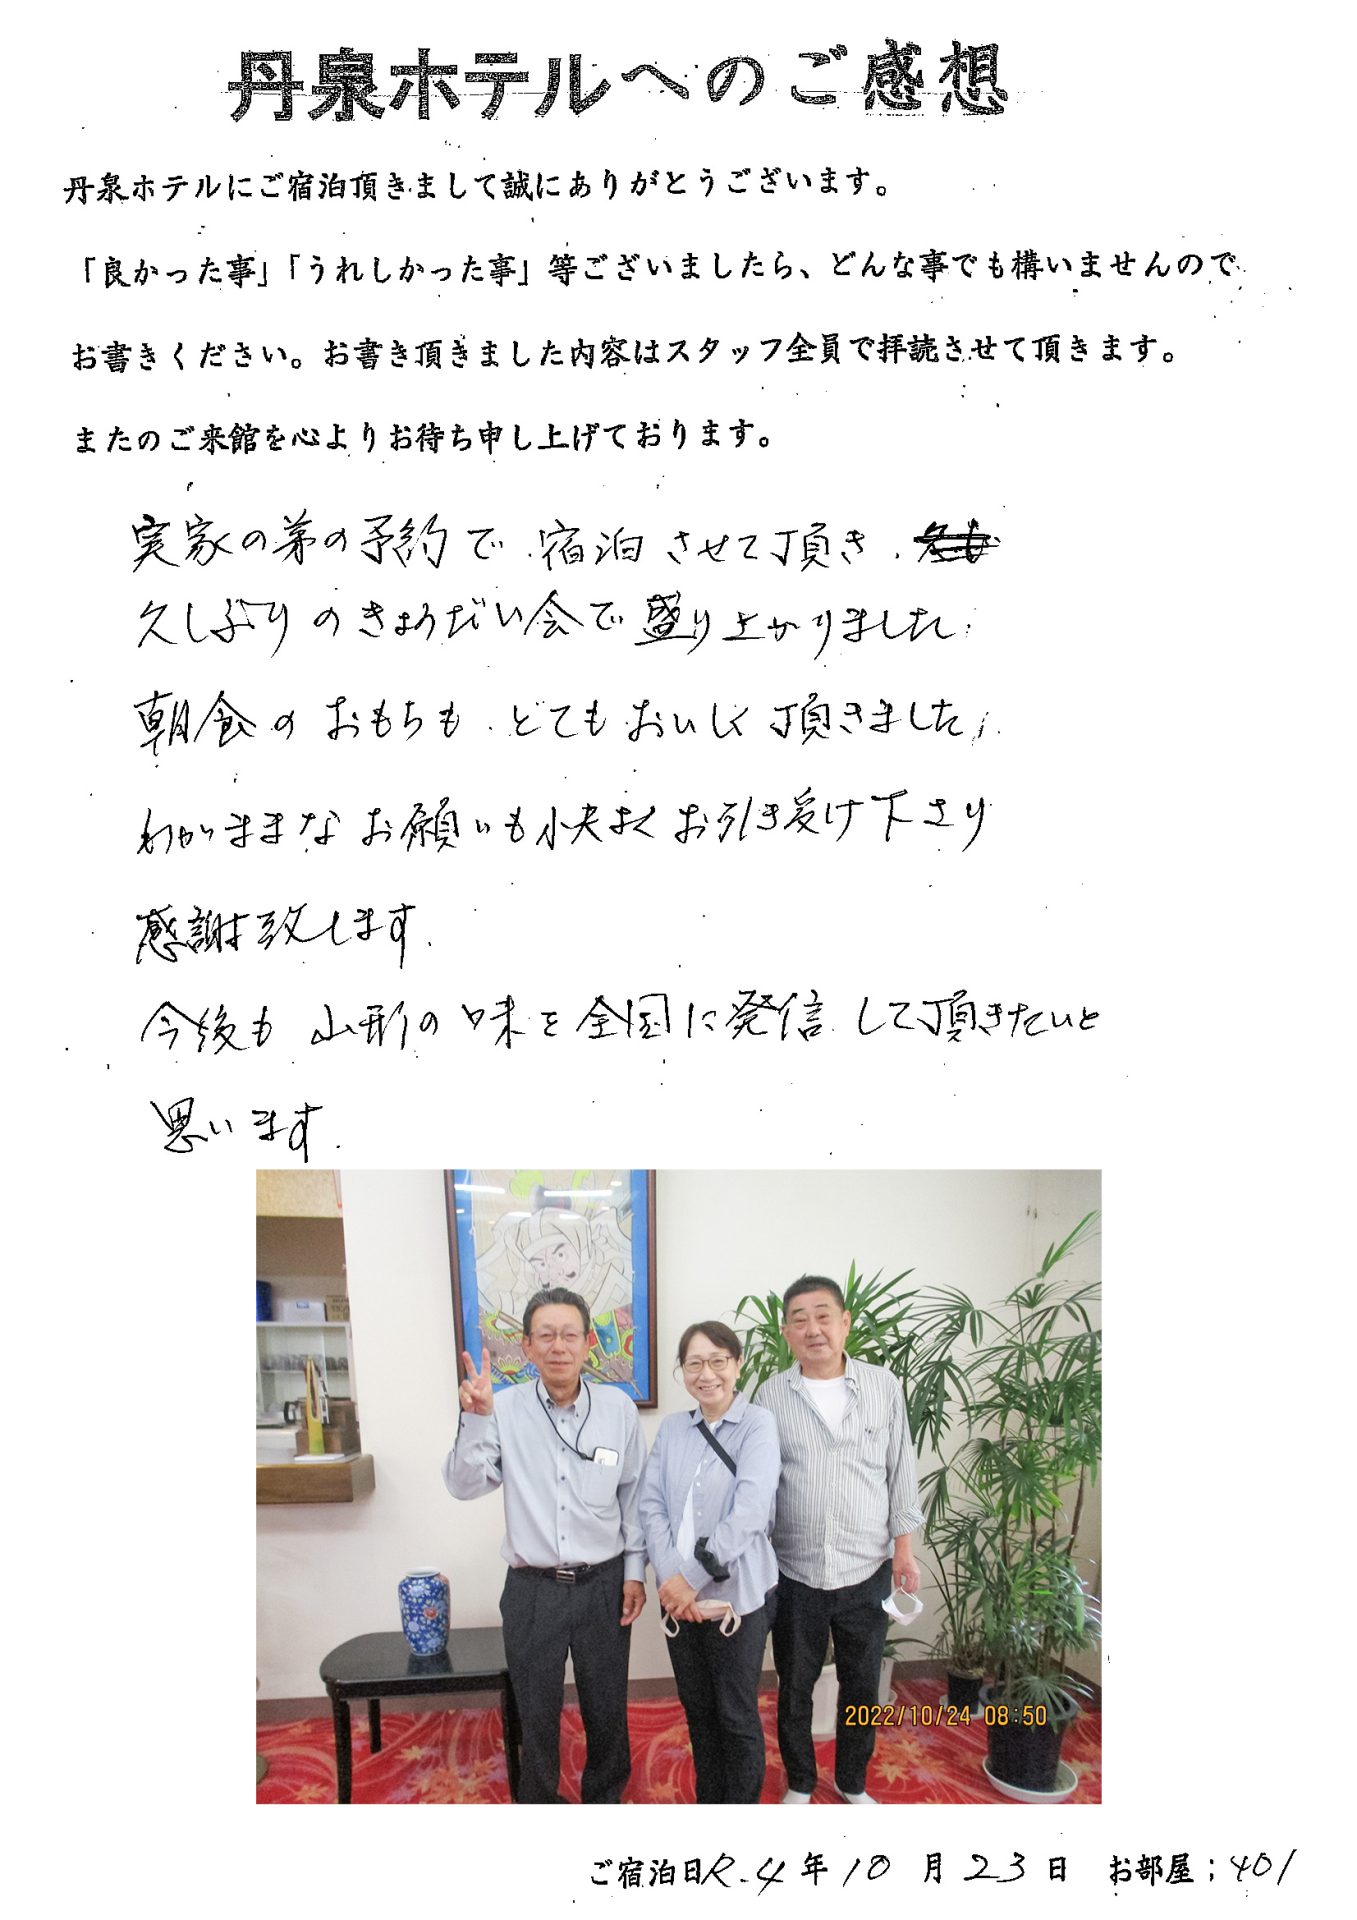 丹泉ホテルへのご感想
丹泉ホテルにご宿泊頂きまして誠にありがとうございます。
「良かった事」「うれしかった事」等ございましたら、どんな事でも構いませんので
お書きください。お書き頂きました内容はスタッフ全員で拝読させて頂きます。
またのご来館を心よりお待ち申し上げております。
実家の弟の予約で宿泊させて頂き、
久しぶりのきょうだい会で盛り上がりました。
朝食のおもちも、とてもおいしく頂きました。
わがままなお願いも快よくお引き受け下さり
感謝致します。
今後も山形の味を全国に発信して頂きたいと
思います。
2022/10/24 08:50
ご宿泊日R.4年10月23日 お部屋;401